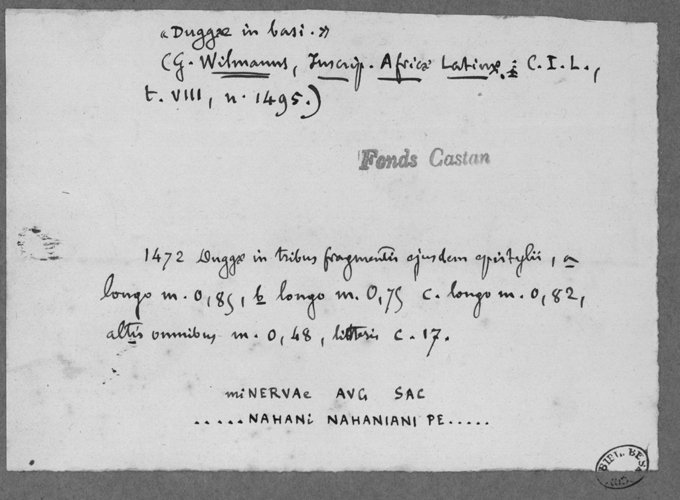 « Duggæ in basi. »
(G. Wilmanns, Inscrip. Africæ Latinæ. : C. I. L.,
t. VIII, n. 1495.)
Fonds Castan
1472 Duggæ in tribus fragmentis ejusdem epistylii, a
longo m. 0,85, b longo m. 0,75 c. longo m. 0,82,
altis omnibus m. 0,48, litteris c. 17.
miNERVAe AVG SAC
.....NAHANi NAHANIANI PE.....